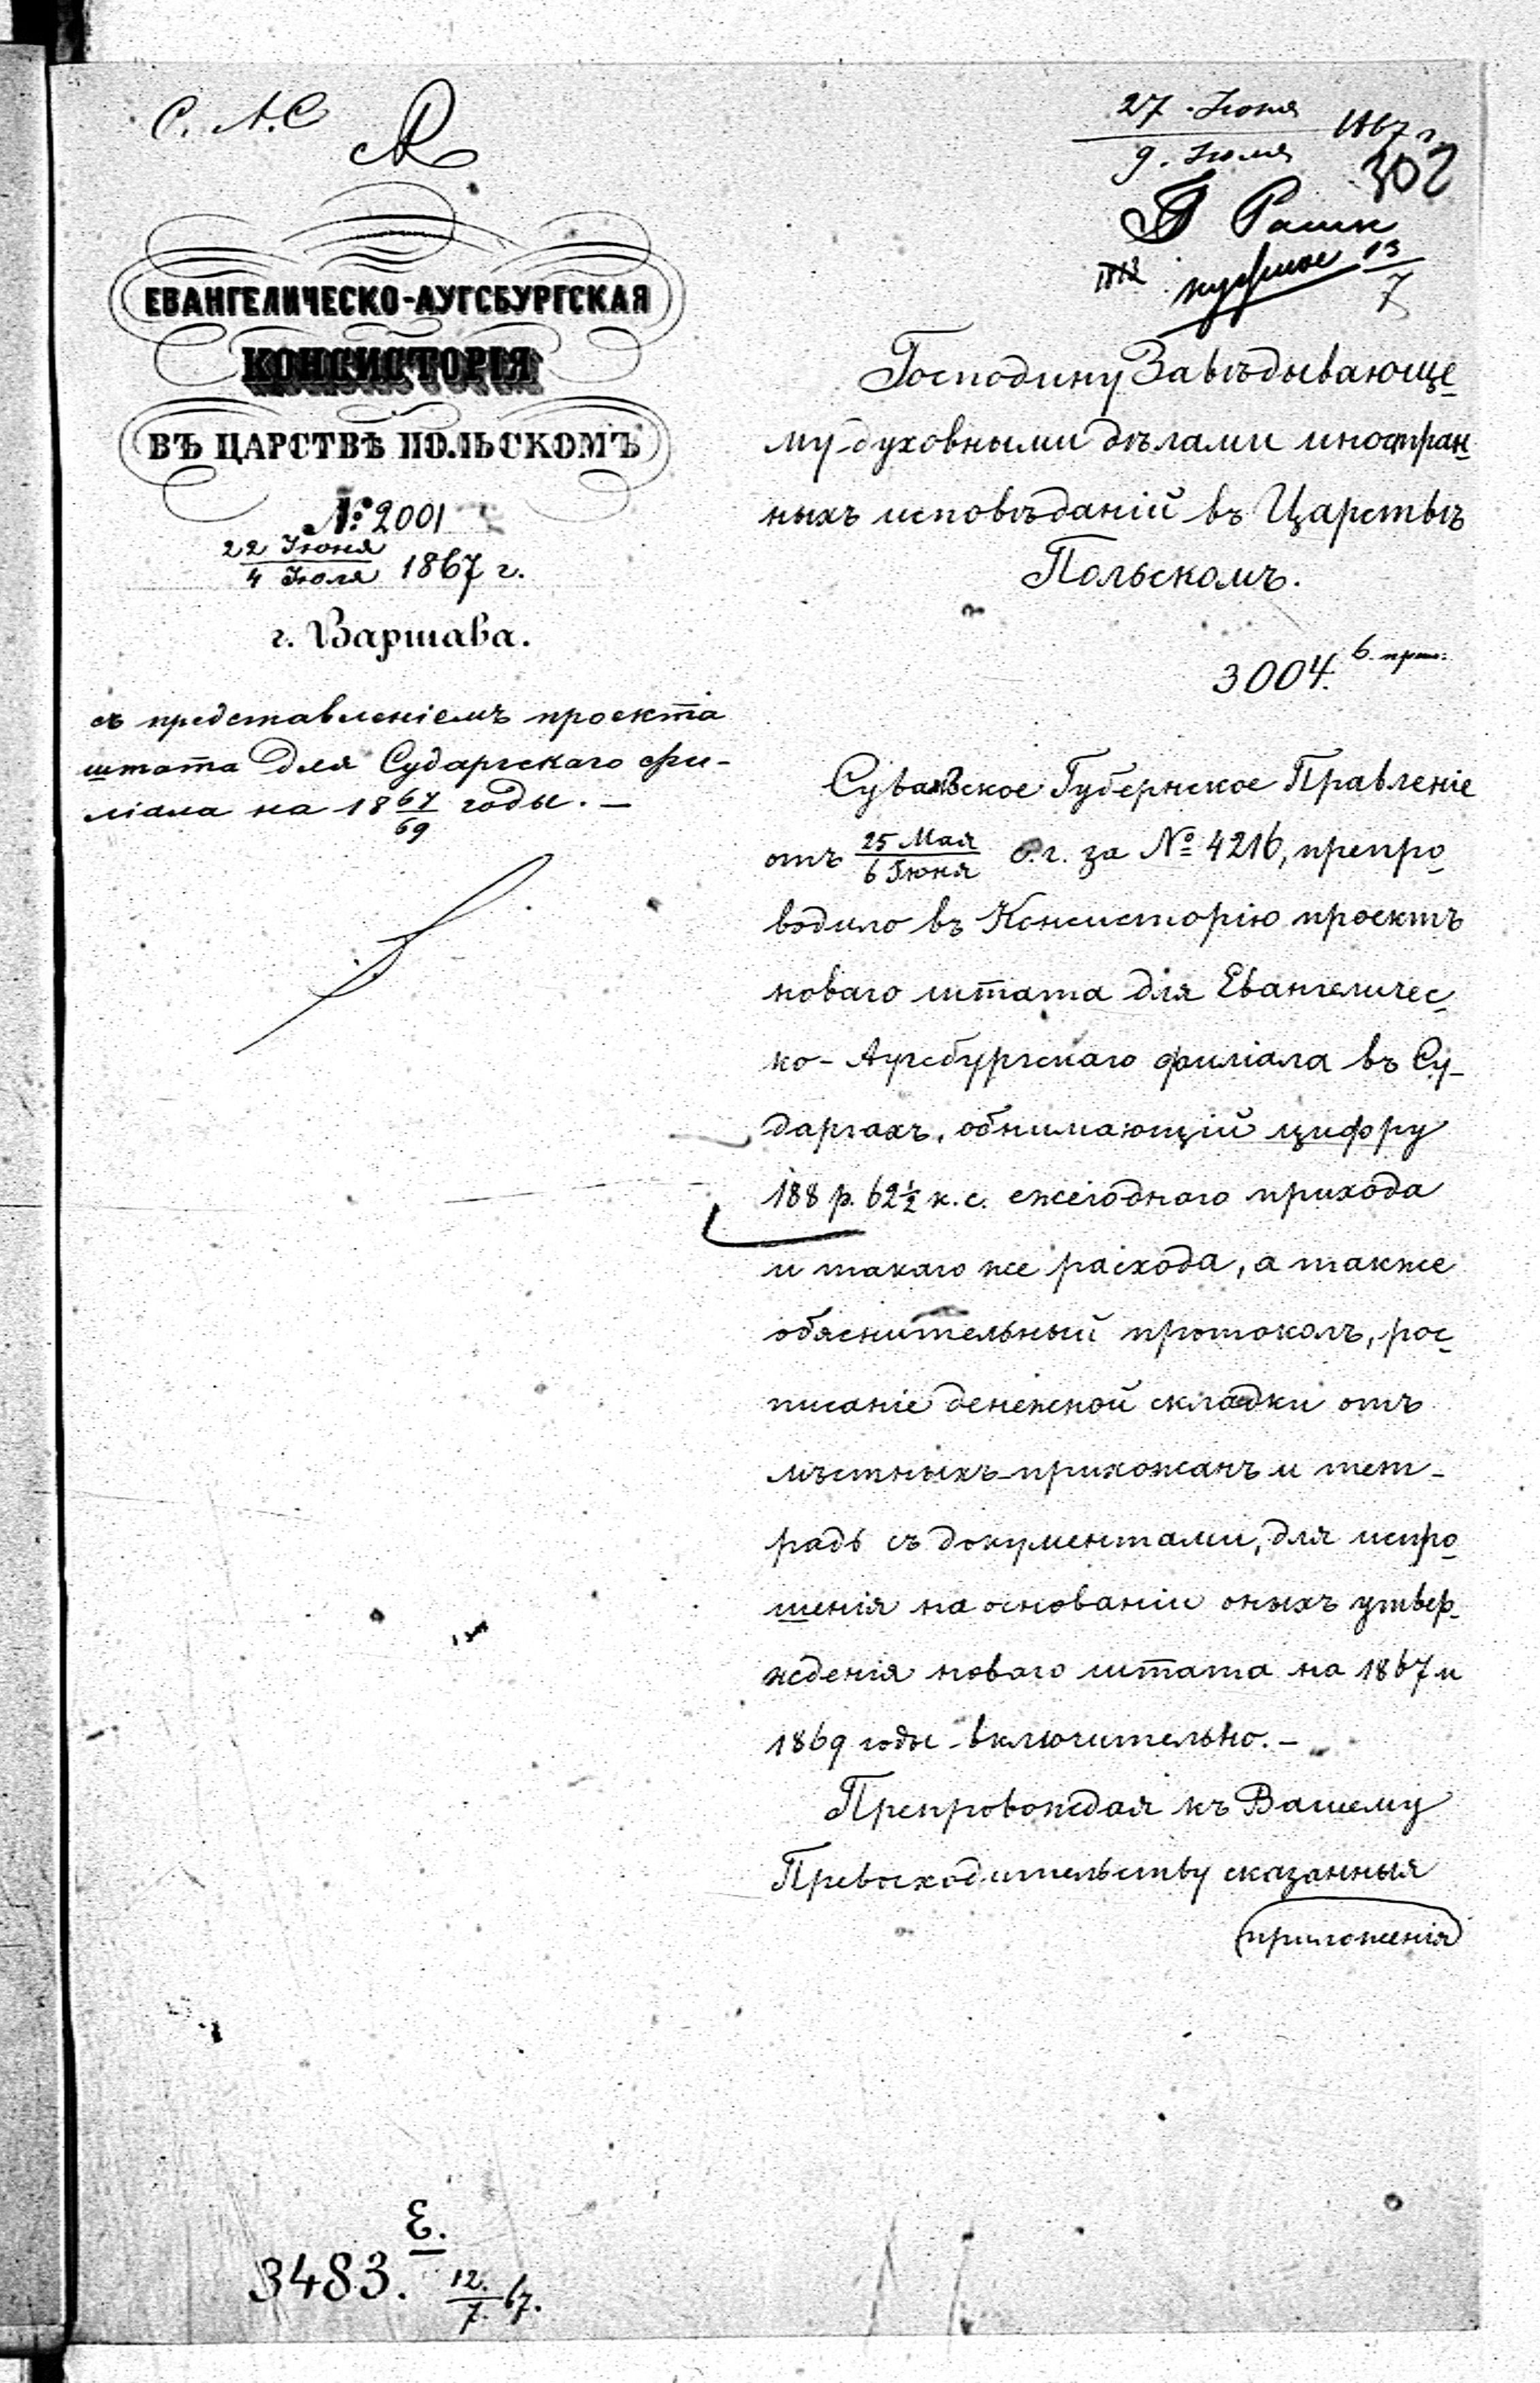 С. А. С
27 Июня 1867 г.
9. Июля
302
13
7
ЕВАНГЕЛИЧЕСКО-АУГСБУРГСКАЯ
КОНСИСТОРІЯ
ВЪ ЦАРСТВѢ ПОЛЬСКОМЪ
№ 2001
22 Июня
4 Июля 1867 г.
г. Варшава.
съ представленіемъ проекта
штата для Сударгскаго фи-
ліала на 1867/69 годы. —
Господину Завѣдывающе-
му духовными дѣлами иностран-
ныхъ исповѣданій въ Царствѣ
Польскомъ.
3004. 6. прил:
Сувалкское Губернское Правленіе
отъ 25 Мая / 6 Іюня с. г. за № 4216, препро-
водило въ Консисторію проектъ
новаго штата для Евангеличес-
ко-Аугсбургскаго филіала въ Су-
даргахъ, обнимающій цифру
188 р. 62½ к. с. ежегоднаго прихода
и такаго же расхода, а также
обяснительный протоколъ, рос-
писаніе денежной складки отъ
мѣстныхъ прихожанъ и тет-
радь съ документами, для испро-
шенія на основаніи оныхъ утвер-
жденія новаго штата на 1867 и
1869 годы включительно. —
Препровождая къ Вашему
Превосходительству сказанныя
приложенія
Е.
3483. 12./7. 67.